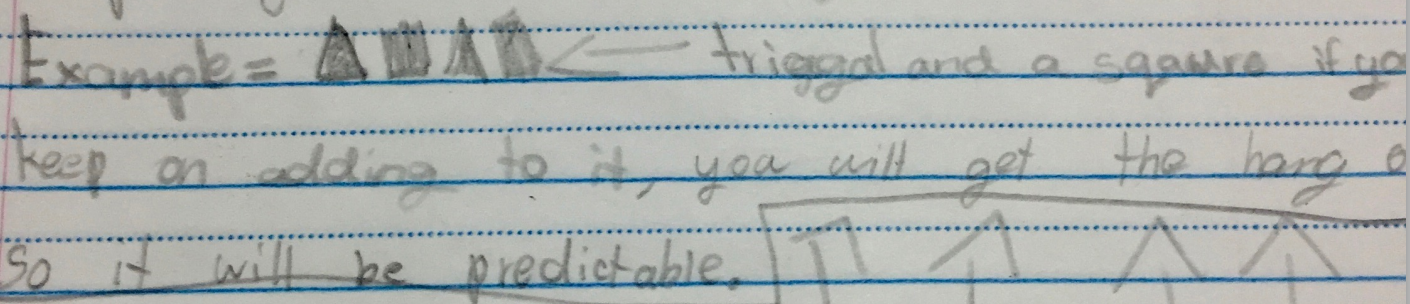 Example = triggal and a sqaure if yo
keep on adding to it, you will get the hang o
so it will be predictable.